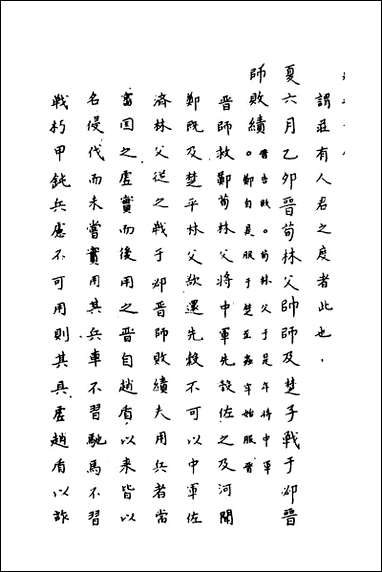 謂莊有人君之度者此也
夏六月乙卯晉荀林父帥師及楚子戰于邲晉
師敗績。晉告敗。荀林父于是年將中軍
。鄭自是服于楚至襄年始服晉
晉師救鄭荀林父將中軍先縠佐之及河聞
鄭既及楚平林父欲還先縠不可以中軍佐
濟林父從之戰于邲晉師敗績夫用兵者當
審囯之虛實而後用之晉自趙盾以來皆以
名侵伐而未嘗實用其兵車不習馳馬不習
戰朽甲鈍兵慮不可用則其具虛趙盾以詐